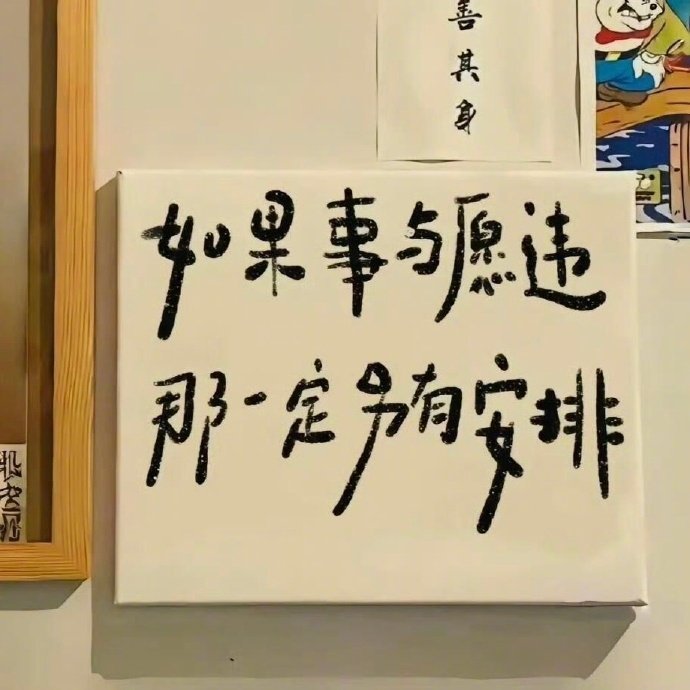 善其身
如果事与愿违
那一定另有安排